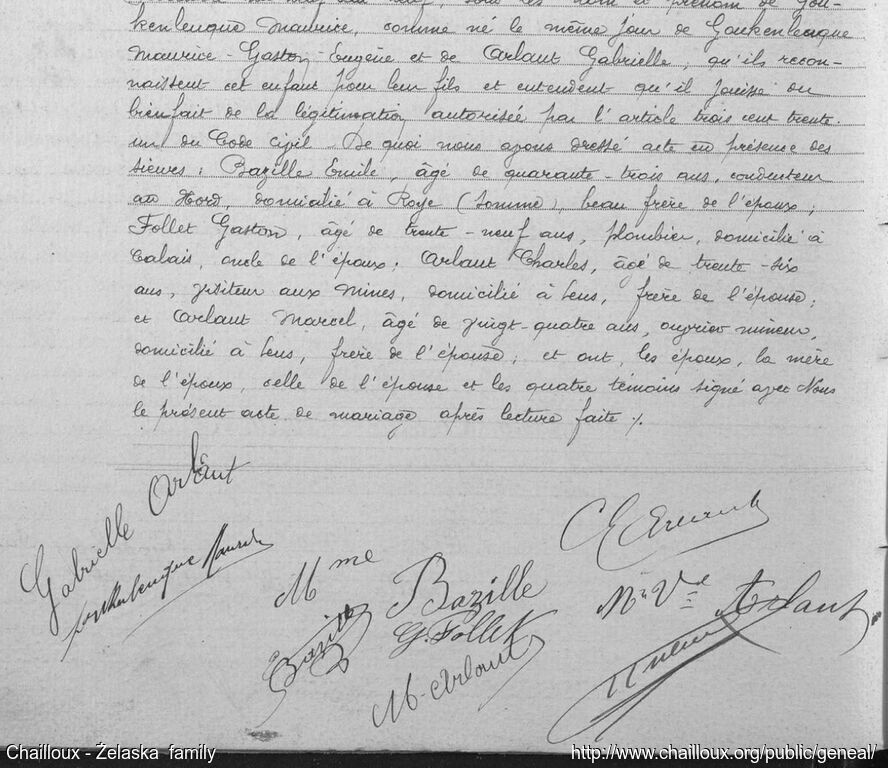 sous les nom et prénom de Gou-
kenleuque Maurice, comme né le même jour de Goukenleuque
Maurice-Gaston-Eugène et de Arlaut Gabrielle, qu'ils recon-
naissent cet enfant pour leur fils et entendent qu'il jouisse du
bienfait de la légitimation autorisée par l'article trois cent trente
un du Code civil. De quoi nous avons dressé acte en présence des
sieurs: Bazille Emile, âgé de quarante-trois ans, conducteur
au Nord, domicilié à Roye (Somme), beau frère de l'époux;
Follet Gaston, âgé de trente-neuf ans, plombier, domicilié à
Calais, oncle de l'époux; Arlaut Charles, âgé de trente-six
ans, visiteur aux mines, domicilié à Lens, frère de l'épouse;
et Arlaut Marcel, âgé de vingt-quatre ans, ouvrier mineur,
domicilié à Lens, frère de l'épouse; et ont, les époux, la mère
de l'époux, celle de l'épouse et les quatre témoins signé avec Nous
le présent acte de mariage après lecture faite ./.
Gabrielle Arlaut
Mme Bazille
Bazille
G. Follet
M. Arlaut
Mme Vve Arlaut
Chailloux - Żelaska family
http://www.chailloux.org/public/geneal/